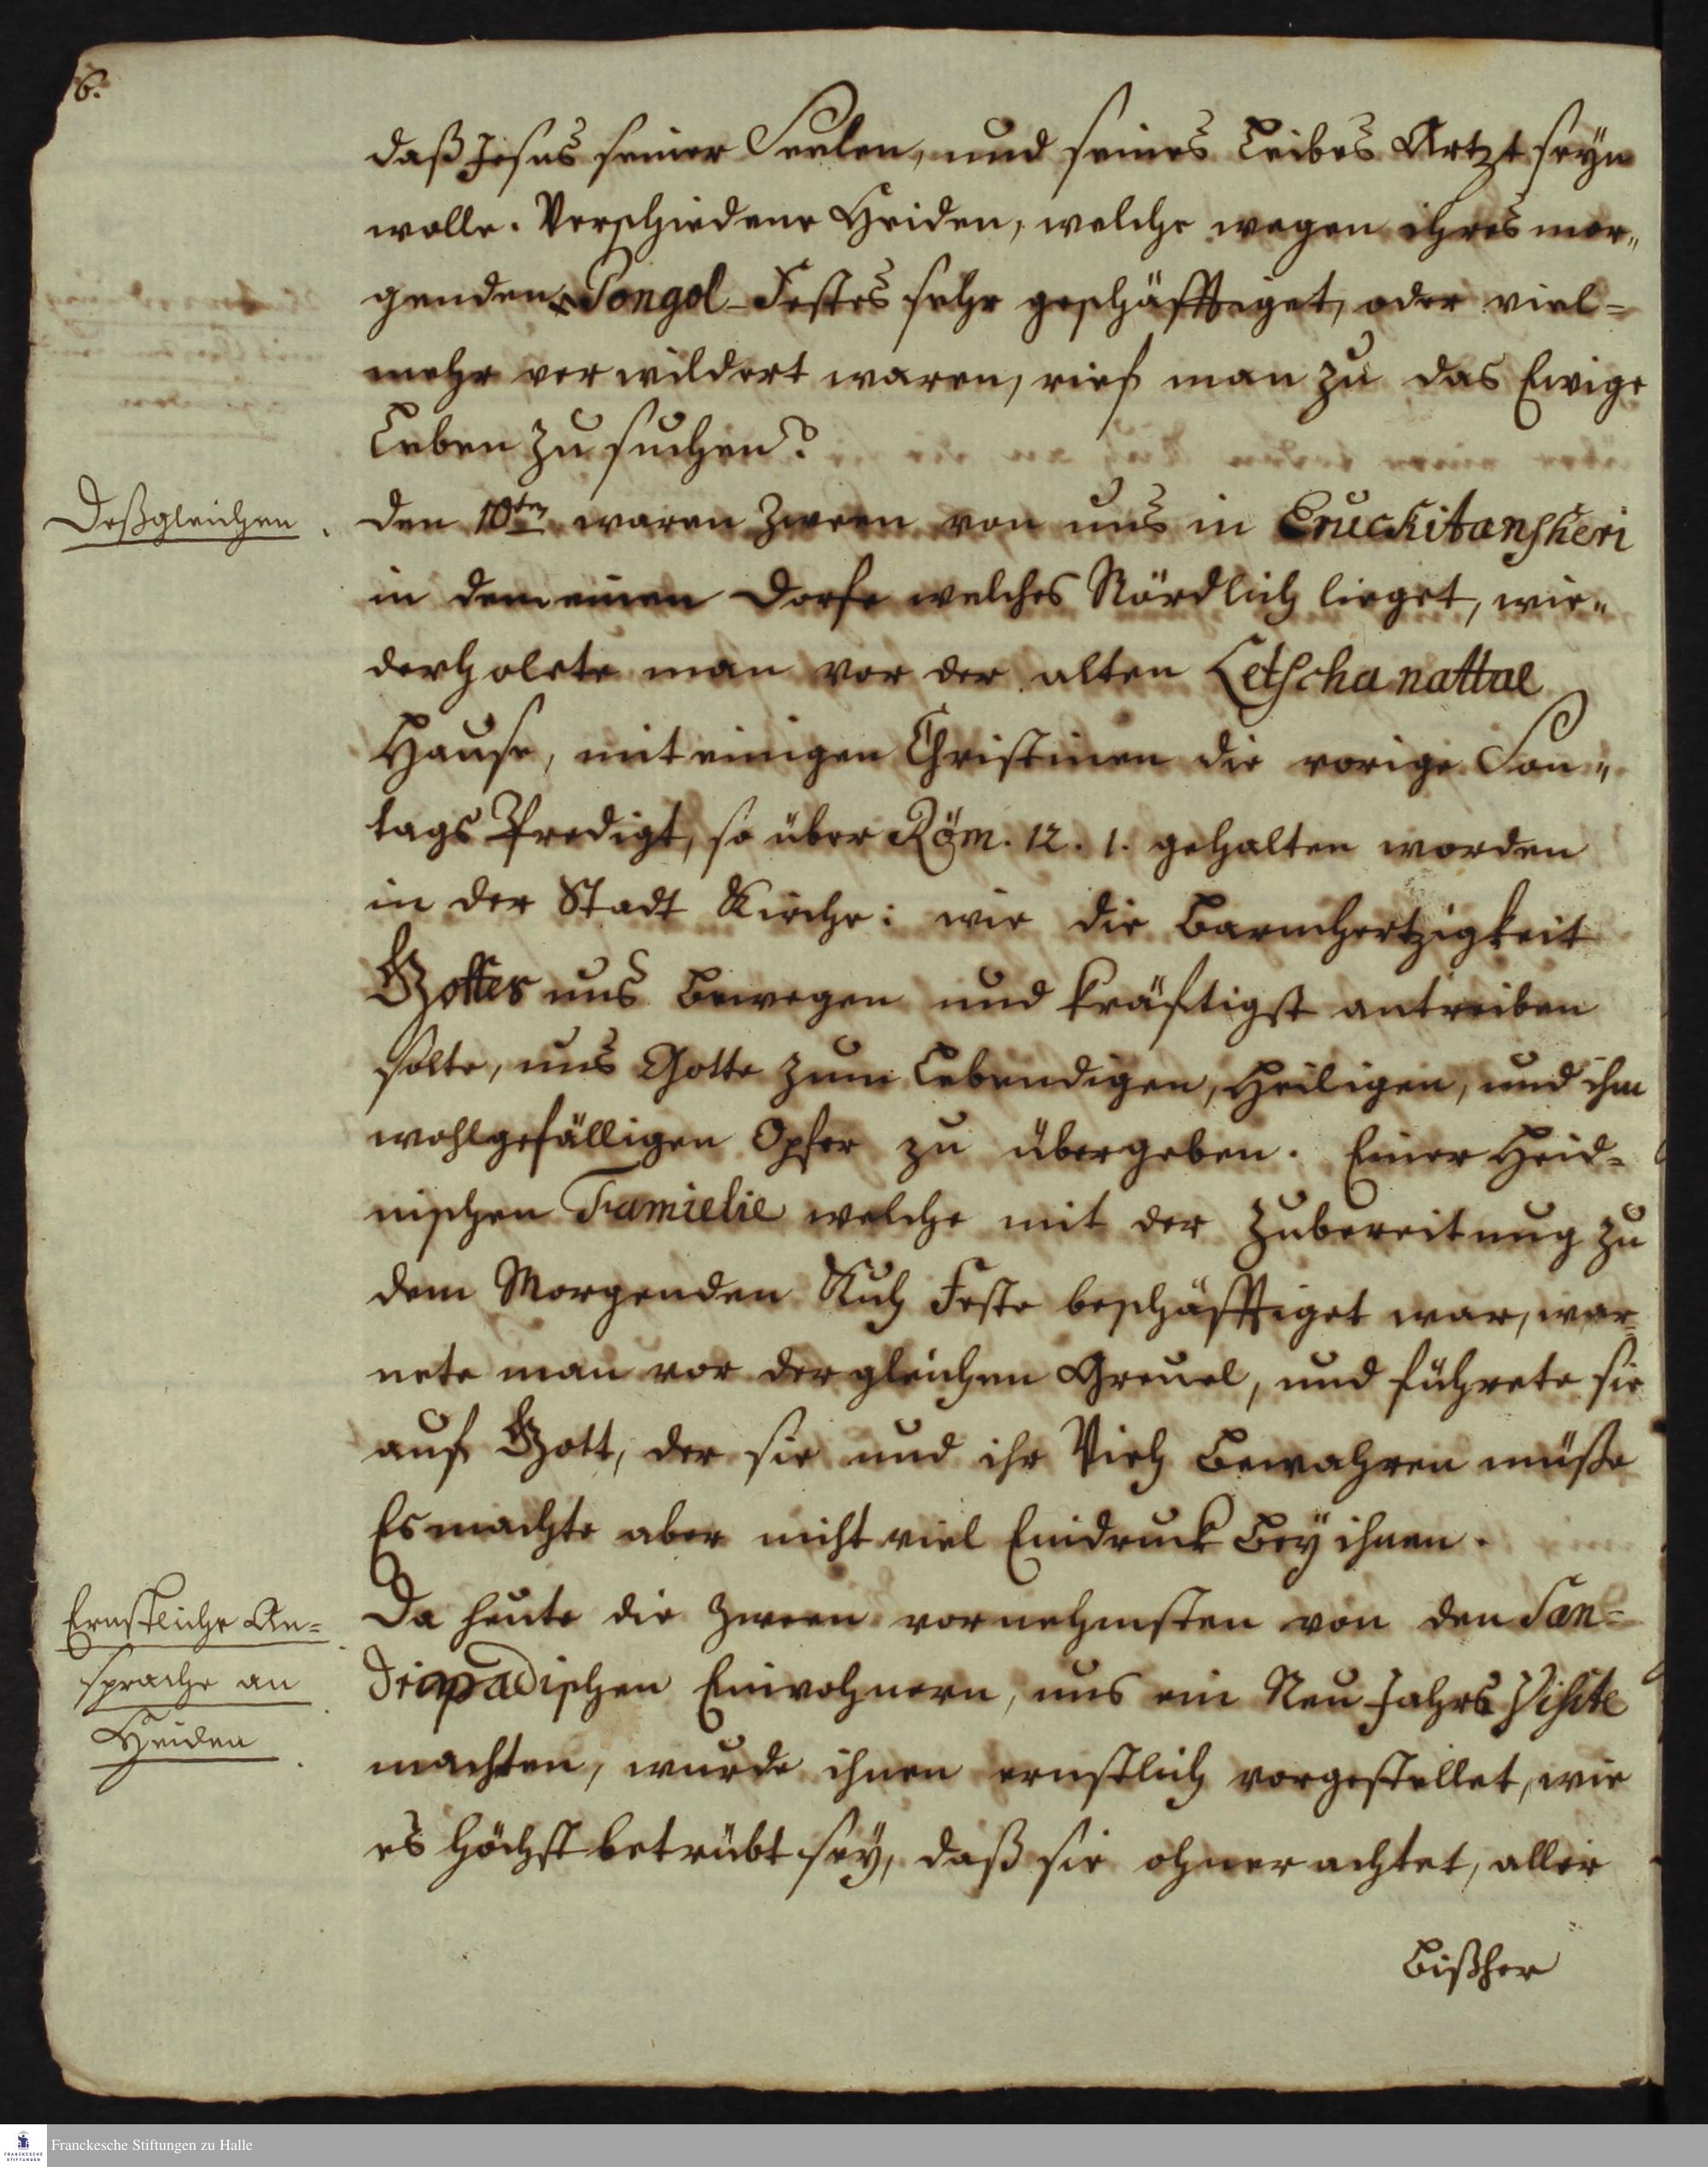 6.
daß Jesus seiner Seelen, und seines Leibes Artzt seyn
wolle. Verschiedene Heiden, welche wegen ihres mor„
genden Pongol-Festes sehr geschäfftiget, oder viel=
mehr verwildert waren, rief man zu das Ewige
Leben zu suchen?
Deßgleichen.
den 10ten waren Zween von uns in Eruckitansheri
in dem einen Dorfe welches Nördlich lieget, wie„
derholete man vor der alten Letscha nattal
Hause, mit einigen Christinen die vorige Son„
tags Predigt, so über Röm. 12. 1. gehalten worden
in der Stadt Kirche: wie die Barmhertzigkeit
Gottes uns bewegen und kräftigst antreiben
solte, uns Gotte zum Lebendigen, Heiligen, und ihm
wohlgefälligen Opfer zu übergeben. Einer Heid=
nischen Familie welche mit der Zubereitung zu
dem Morgenden Kuh Feste beschäfftiget war, war=
nete man vor dergleichen Greuel, und führete sie
auf Gott, der sie und ihr Vieh bewahren müße
Es machte aber nicht viel Eindruck bey ihnen.
Ernstliche An=
sprache an
Heiden.
Da heute die Zween vornehmsten von den San=
dirapadischen Einwohnern, uns ein Neu Jahrs Visite
machten, wurde ihnen ernstlich vorgestellet, wie
es höchst betrübt sey, daß sie ohnerachtet, aller
bißher
Franckesche Stiftungen zu Halle